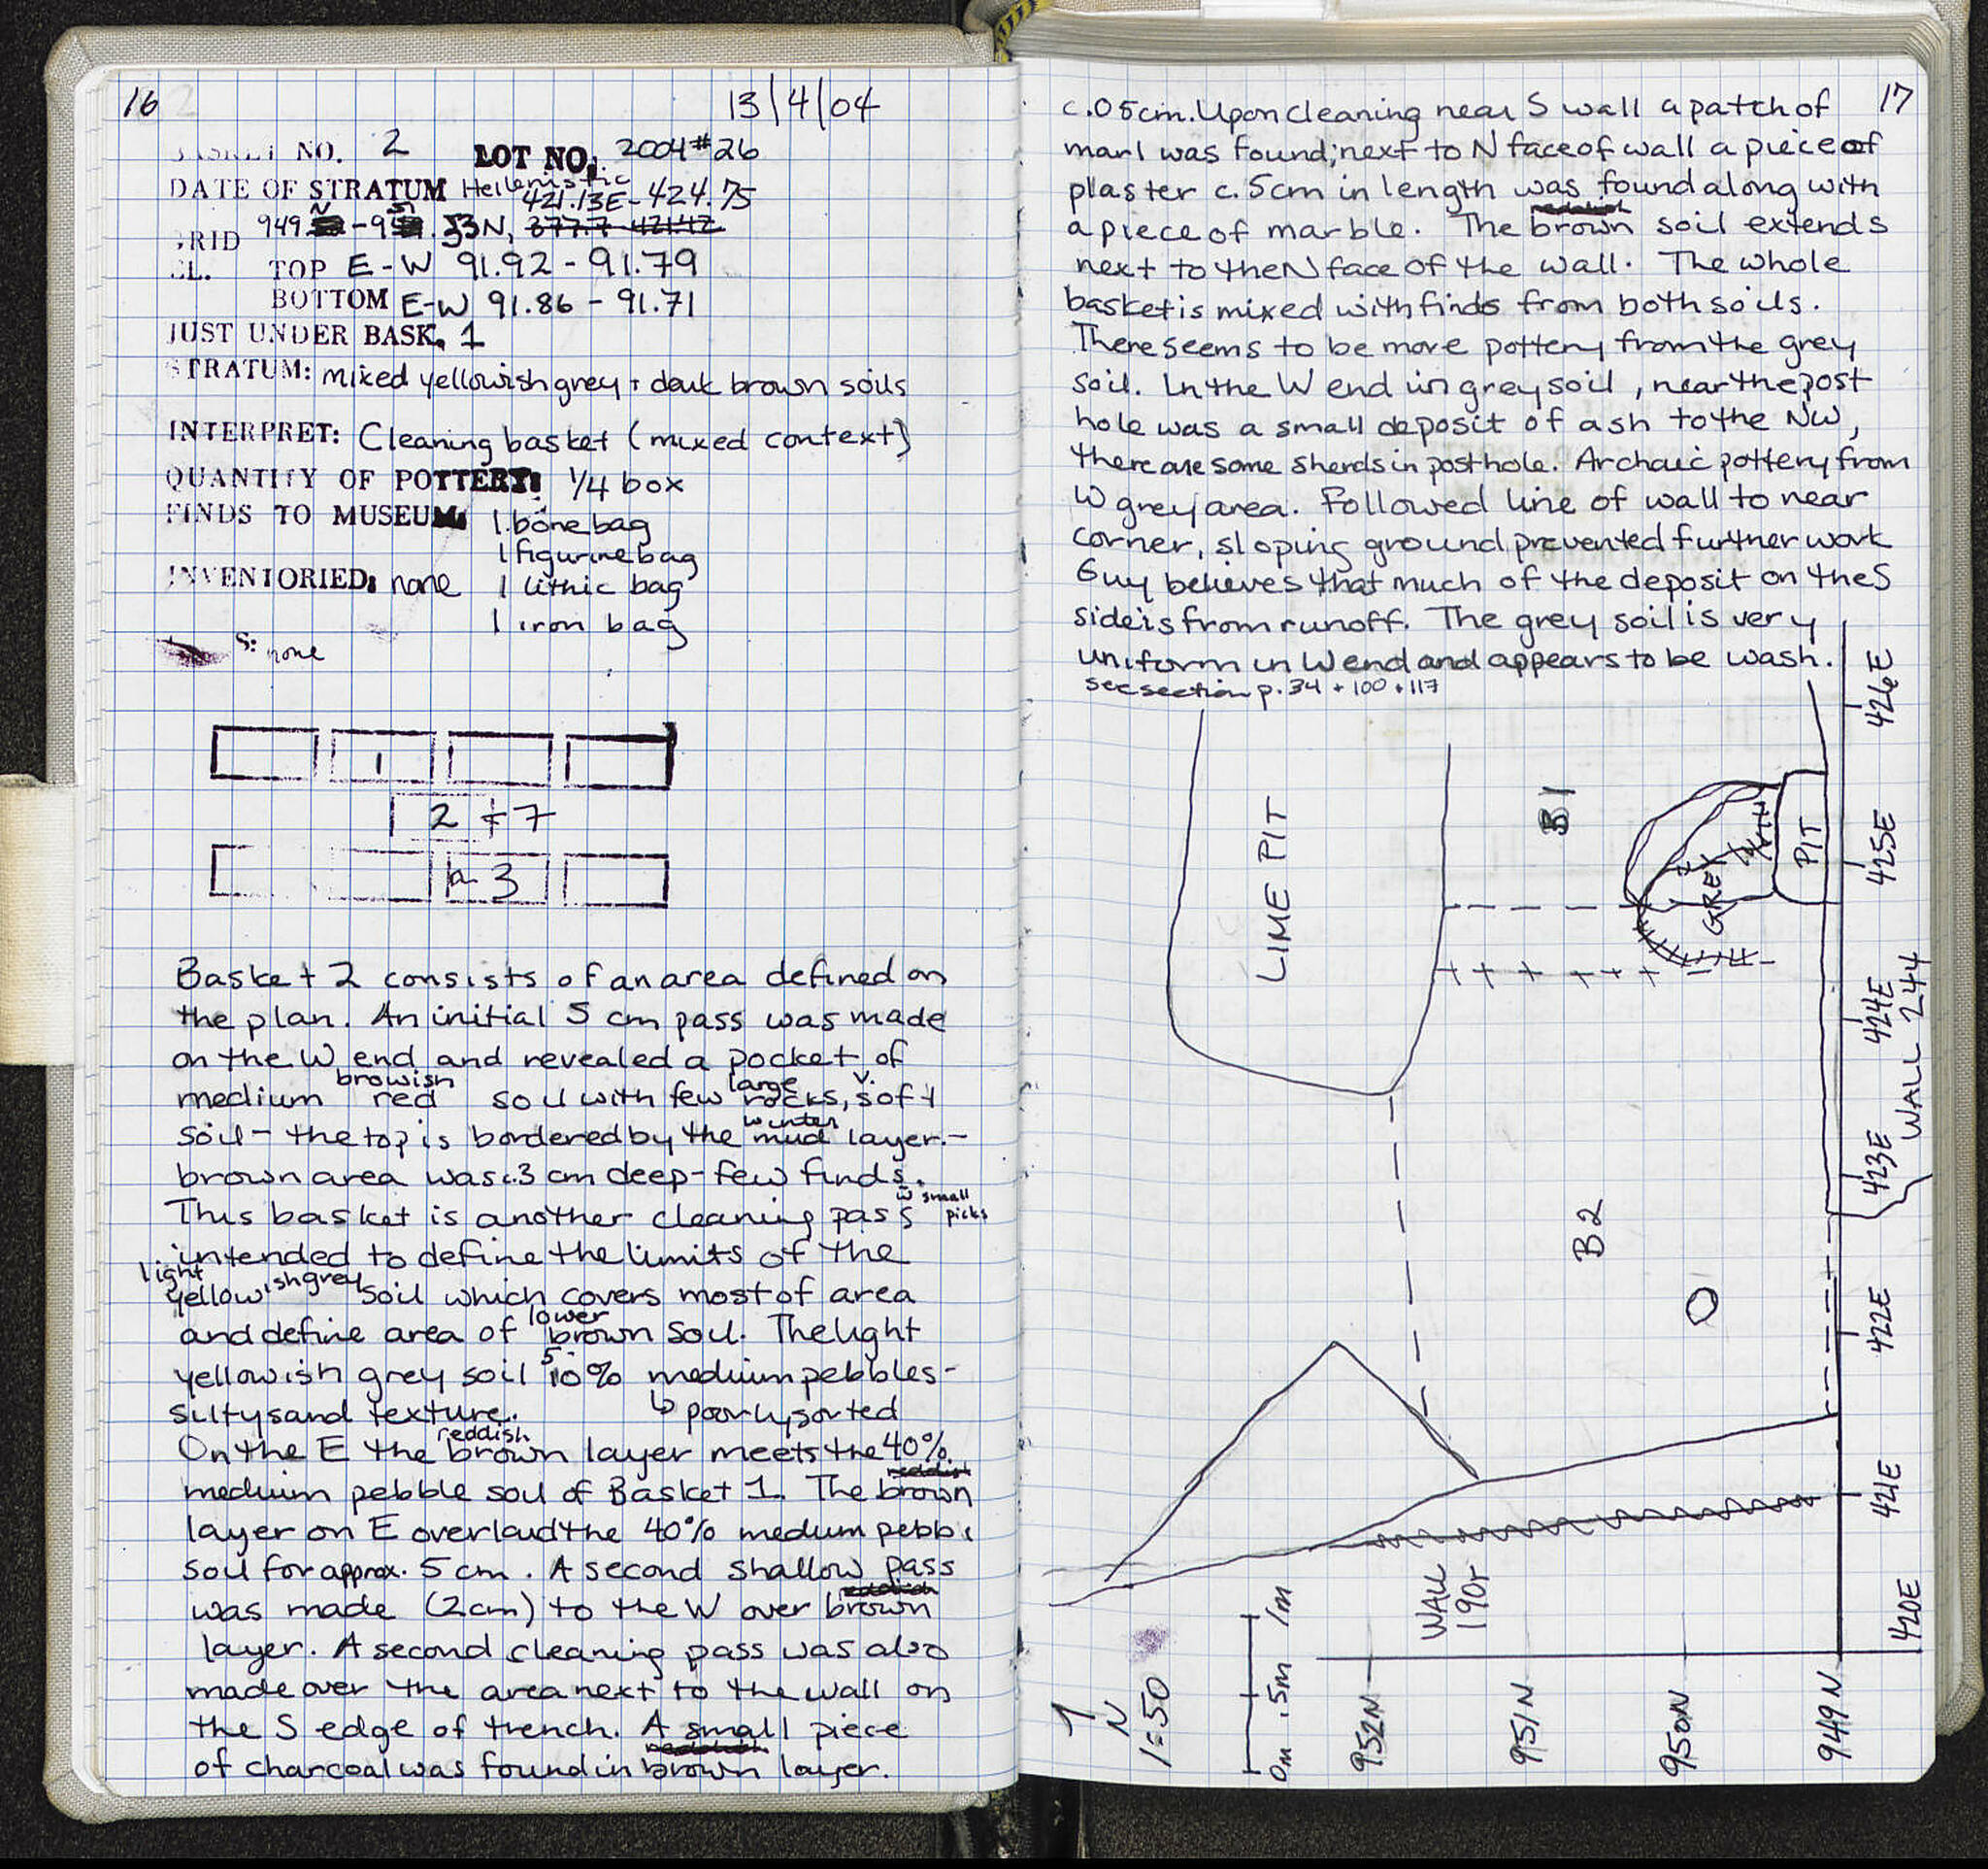 16
13/4/04
BASKET NO. 2 LOT NO. 2004#26
DATE OF STRATUM Hellenistic
421.13E-424.75
GRID 949 N - 951.53N, 377.7-421.42
EL. TOP E-W 91.92-91.79
BOTTOM E-W 91.86 - 91.71
JUST UNDER BASK. 1
STRATUM: mixed yellowish grey + dark brown soils
INTERPRET: Cleaning basket (mixed context)
QUANTITY OF POTTERY: 1/4 box
FINDS TO MUSEUM: 1 bone bag
1 figurine bag
INVENTORIED: none 1 lithic bag
1 iron bag
S: none
1
2 + 7
3
Basket 2 consists of an area defined on
the plan. An initial 5 cm pass was made
on the W end and revealed a pocket of
medium browish red soil with few large rocks, v. soft
soil - the top is bordered by the winter mud layer. -
brown area was c.3 cm deep - few finds.
This basket is another cleaning pass w small picks
intended to define the limits of the
light yellowish grey soil which covers most of area
and define area of lower brown soil. The light
yellowish grey soil 5-10% medium pebbles -
silty sand texture. ↳ poorly sorted
On the E the reddish brown layer meets the 40%
medium pebble soil of Basket 1. The reddish brown
layer on E overlaid the 40% medium pebble
soil for approx. 5 cm. A second shallow pass
was made (2cm) to the W over reddish brown
layer. A second cleaning pass was also
made over the area next to the wall on
the S edge of trench. A small piece
of charcoal was found in reddish brown layer.
17
c. 05cm. Upon cleaning near S wall a patch of
marl was found; next to N face of wall a piece of
plaster c. 5cm in length was found along with
a piece of marble. The reddish brown soil extends
next to the N face of the wall. The whole
basket is mixed with finds from both soils.
There seems to be more pottery from the grey
soil. In the W end in grey soil, near the post
hole was a small deposit of ash to the NW,
there are some sherds in posthole. Archaic pottery from
W grey area. Followed line of wall to near
corner, sloping ground prevented further work
Guy believes that much of the deposit on the S
side is from runoff. The grey soil is very
uniform in W end and appears to be wash.
see section p. 34 + 100 + 117
LIME PIT
B1
GREY
PIT
B2
WALL 244
426E
425E
424E
423E
422E
421E
420E
WALL
190r
N
1=50
0m .5m 1m
952N
951N
950N
949N